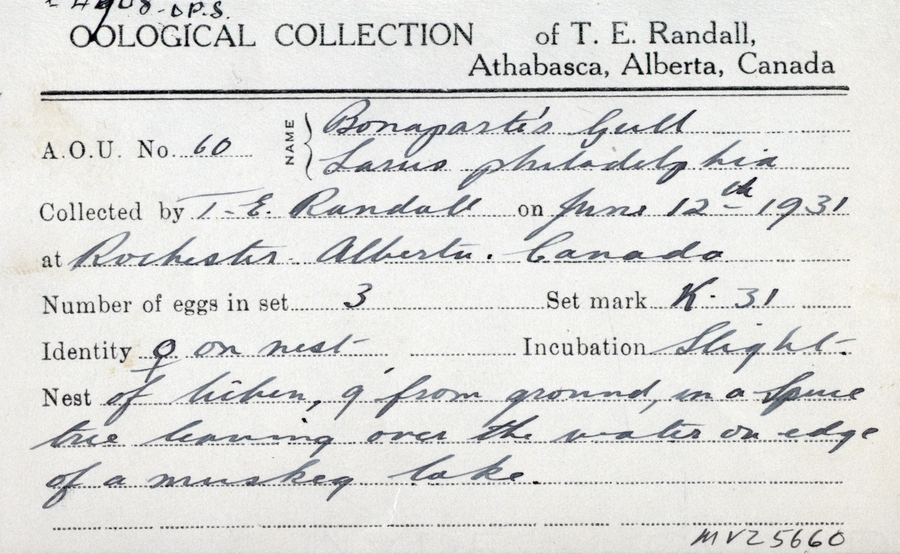 4908. D.P.S.
OOLOGICAL COLLECTION of T. E. Randall,
Athabasca, Alberta, Canada
A.O.U. No. 60 NAME Bonaparte's Gull
Larus philadelphia
Collected by T. E. Randall on June 12th 1931
at Rochester. Alberta. Canada
Number of eggs in set 3 Set mark K. 31
Identity ♀ on nest Incubation Slight.
Nest of lichen, 9' from ground, in a Spruce
tree leaning over the water on edge
of a muskeg lake.
MVZ5660